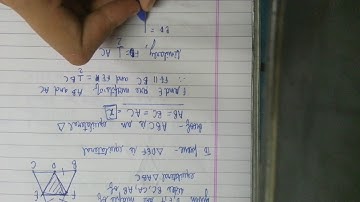 Given - D, E, F are midpts of
sides BC, CA, AB of
equilateral △ABC
To prove - △DEF is equilateral
Proof - ABC is an equilateral △
AB = BC = AC =
F and E are midpts of AB and AC
∴ FE ∥ BC and FE = 1/2 BC
Similarly, = 1/2 AC
A
F E
B D C